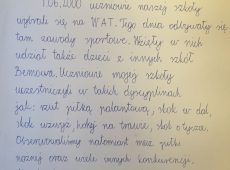 1.06.2000 uczniowie naszej szkoły
wybrali się na WAT. Tego dnia odbywały się
tam zawody sportowe. Wzięły w nich
udział także dzieci z innych szkół
Bemowa. Uczniowie mojej szkoły
uczestniczyli w takich dyscyplinach
jak: rzut piłką palantową, skok w dal,
skok wzwyż, hokej na trawie, skok o tyczce.
Obserwowaliśmy natomiast mecz piłki
nożnej oraz wiele innych konkurencji.